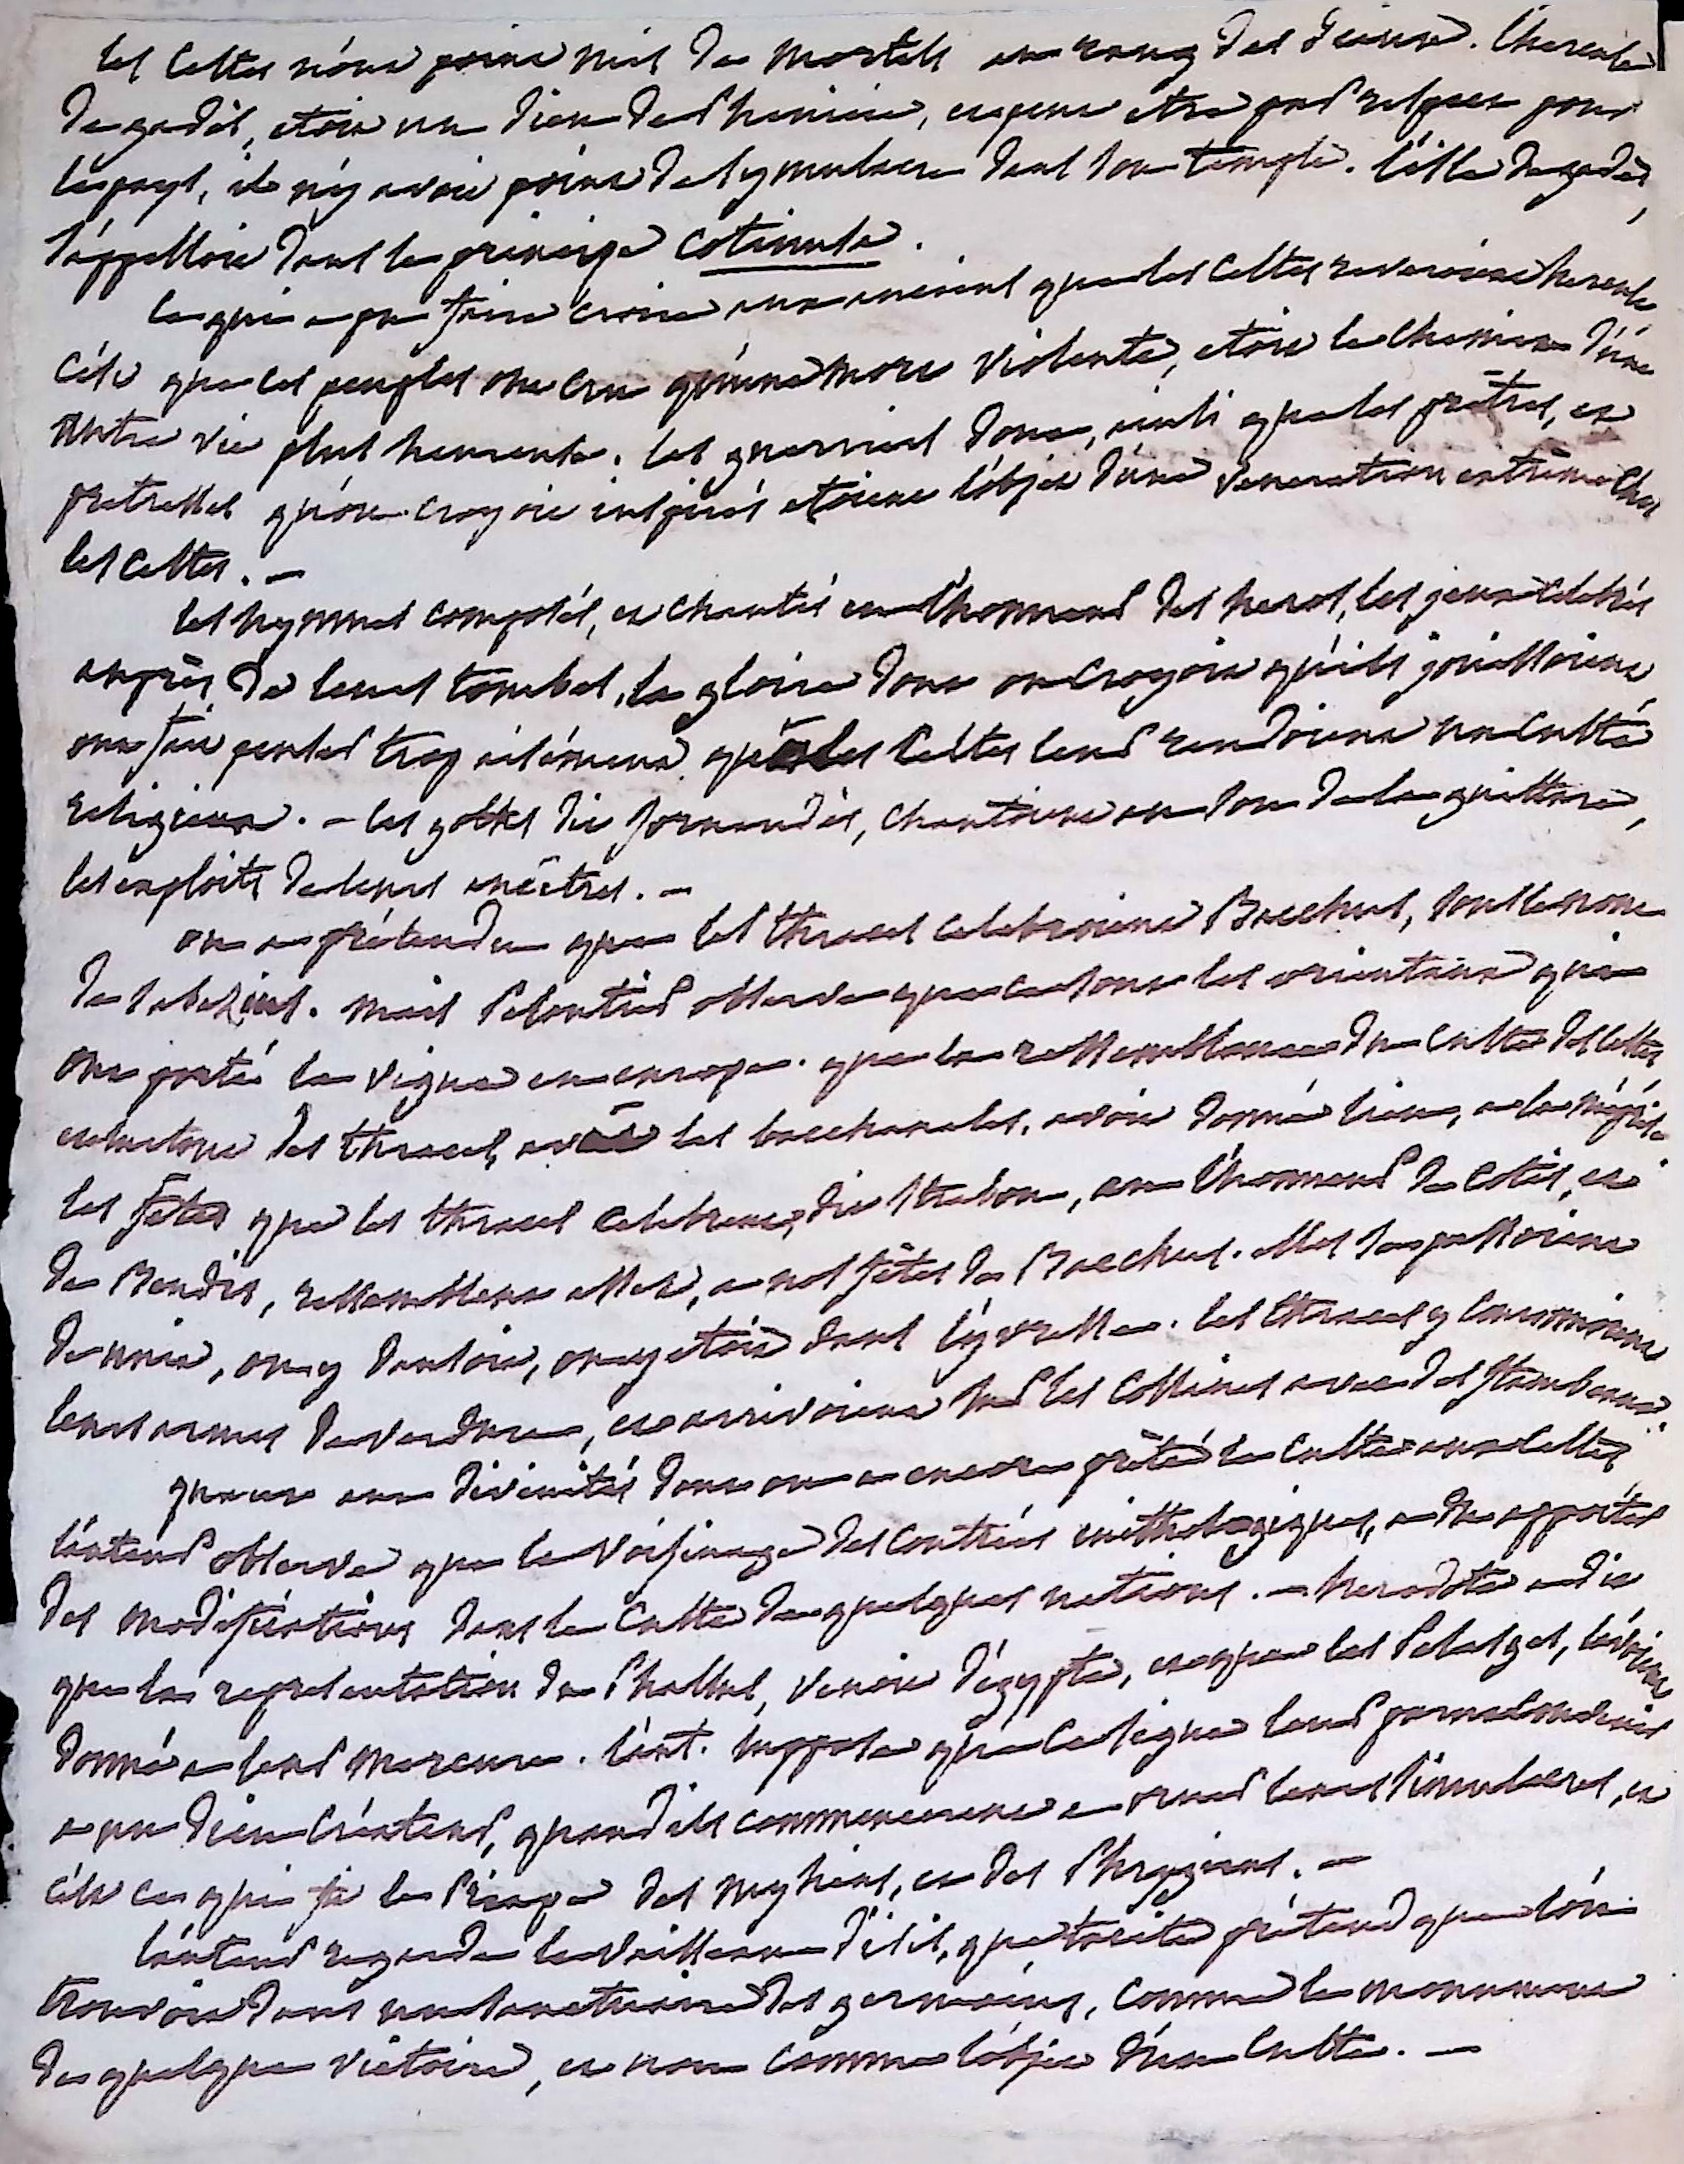 les Celtes n'ont point mis de mortels au rang des Dieux. l'hercule
de gadés, etoit un dieu de Phenicie, et peut etre pas relgué pour
le pays, il n'y avoit point de symulacre dans son temple. l'isle de gadès,
s'appelloit dans le principe Cotinusa.
ce qui a pu faire croire aux anciens que les Celtes reveroient hercule,
c'est que ces peuples ont cru qu'une mort violente, etoit le chemin d'une
autre vie plus heureuse. les guerriers donc, ainsi que les prêtres, et
pretresses qu'on croyoit inspirés etoient l'objet d'une veneration extrême chez
les Celtes. —
les hymnes composés, et chantés en l'honneur des heros, les jeux celebrés
auprès de leurs tombes, la gloire dont on croyoit qu'ils jouissoient,
ont fait penser trop aisément que les Celtes leur rendoient un culte
religieux. — les goths dit Jornandès, chantoient au son de la guittare,
les exploits de leurs ancêtres. —
on a prétendu que les thraces celebroient Bacchus, sous le nom
de sabazius. mais Pelloutier observe que ce sont les orientaux qui
ont porté la vigne en europe. que la ressemblance du culte des Celtes
et surtout des thraces, avec les bacchanales, avoit donné lieu, a la méprise.
les fêtes que les thraces celebrent, dit strabon, en l'honneur de Cotis, et
de Bendis, ressemblent assez, a nos fêtes de Bacchus. elles se passoient
de nuit, on y dansoit, on y etoit dans l'yvresse. les thraces y couronnoient
leurs armes de verdure, et arrivoient sur les collines avec des flambeaux.
quant aux divinités dont on a encore prêté le culte aux Celtes
l'auteur observe que le voisinage des contrées mithologiques, a du apporter
des modifications dans le culte de quelques nations. — herodote a dit
que la representation du Phallus, venoit d'égypte, et que les Pelasges, l'avoient
donné a leur mercure. l'aut. suppose que ce signe leur parut convenir
a un dieu Créateur, quand ils commencerent a orner leurs simulacres, et
c'est ce qui fit le Priape des Mysiens, et des Phrygiens. —
l'auteur regarde le vaisseau d'isis, que tacite prétend que l'on
trouvoit dans un sanctuaire des germains, comme le monument
de quelque victoire, et non comme l'objet d'un culte. —